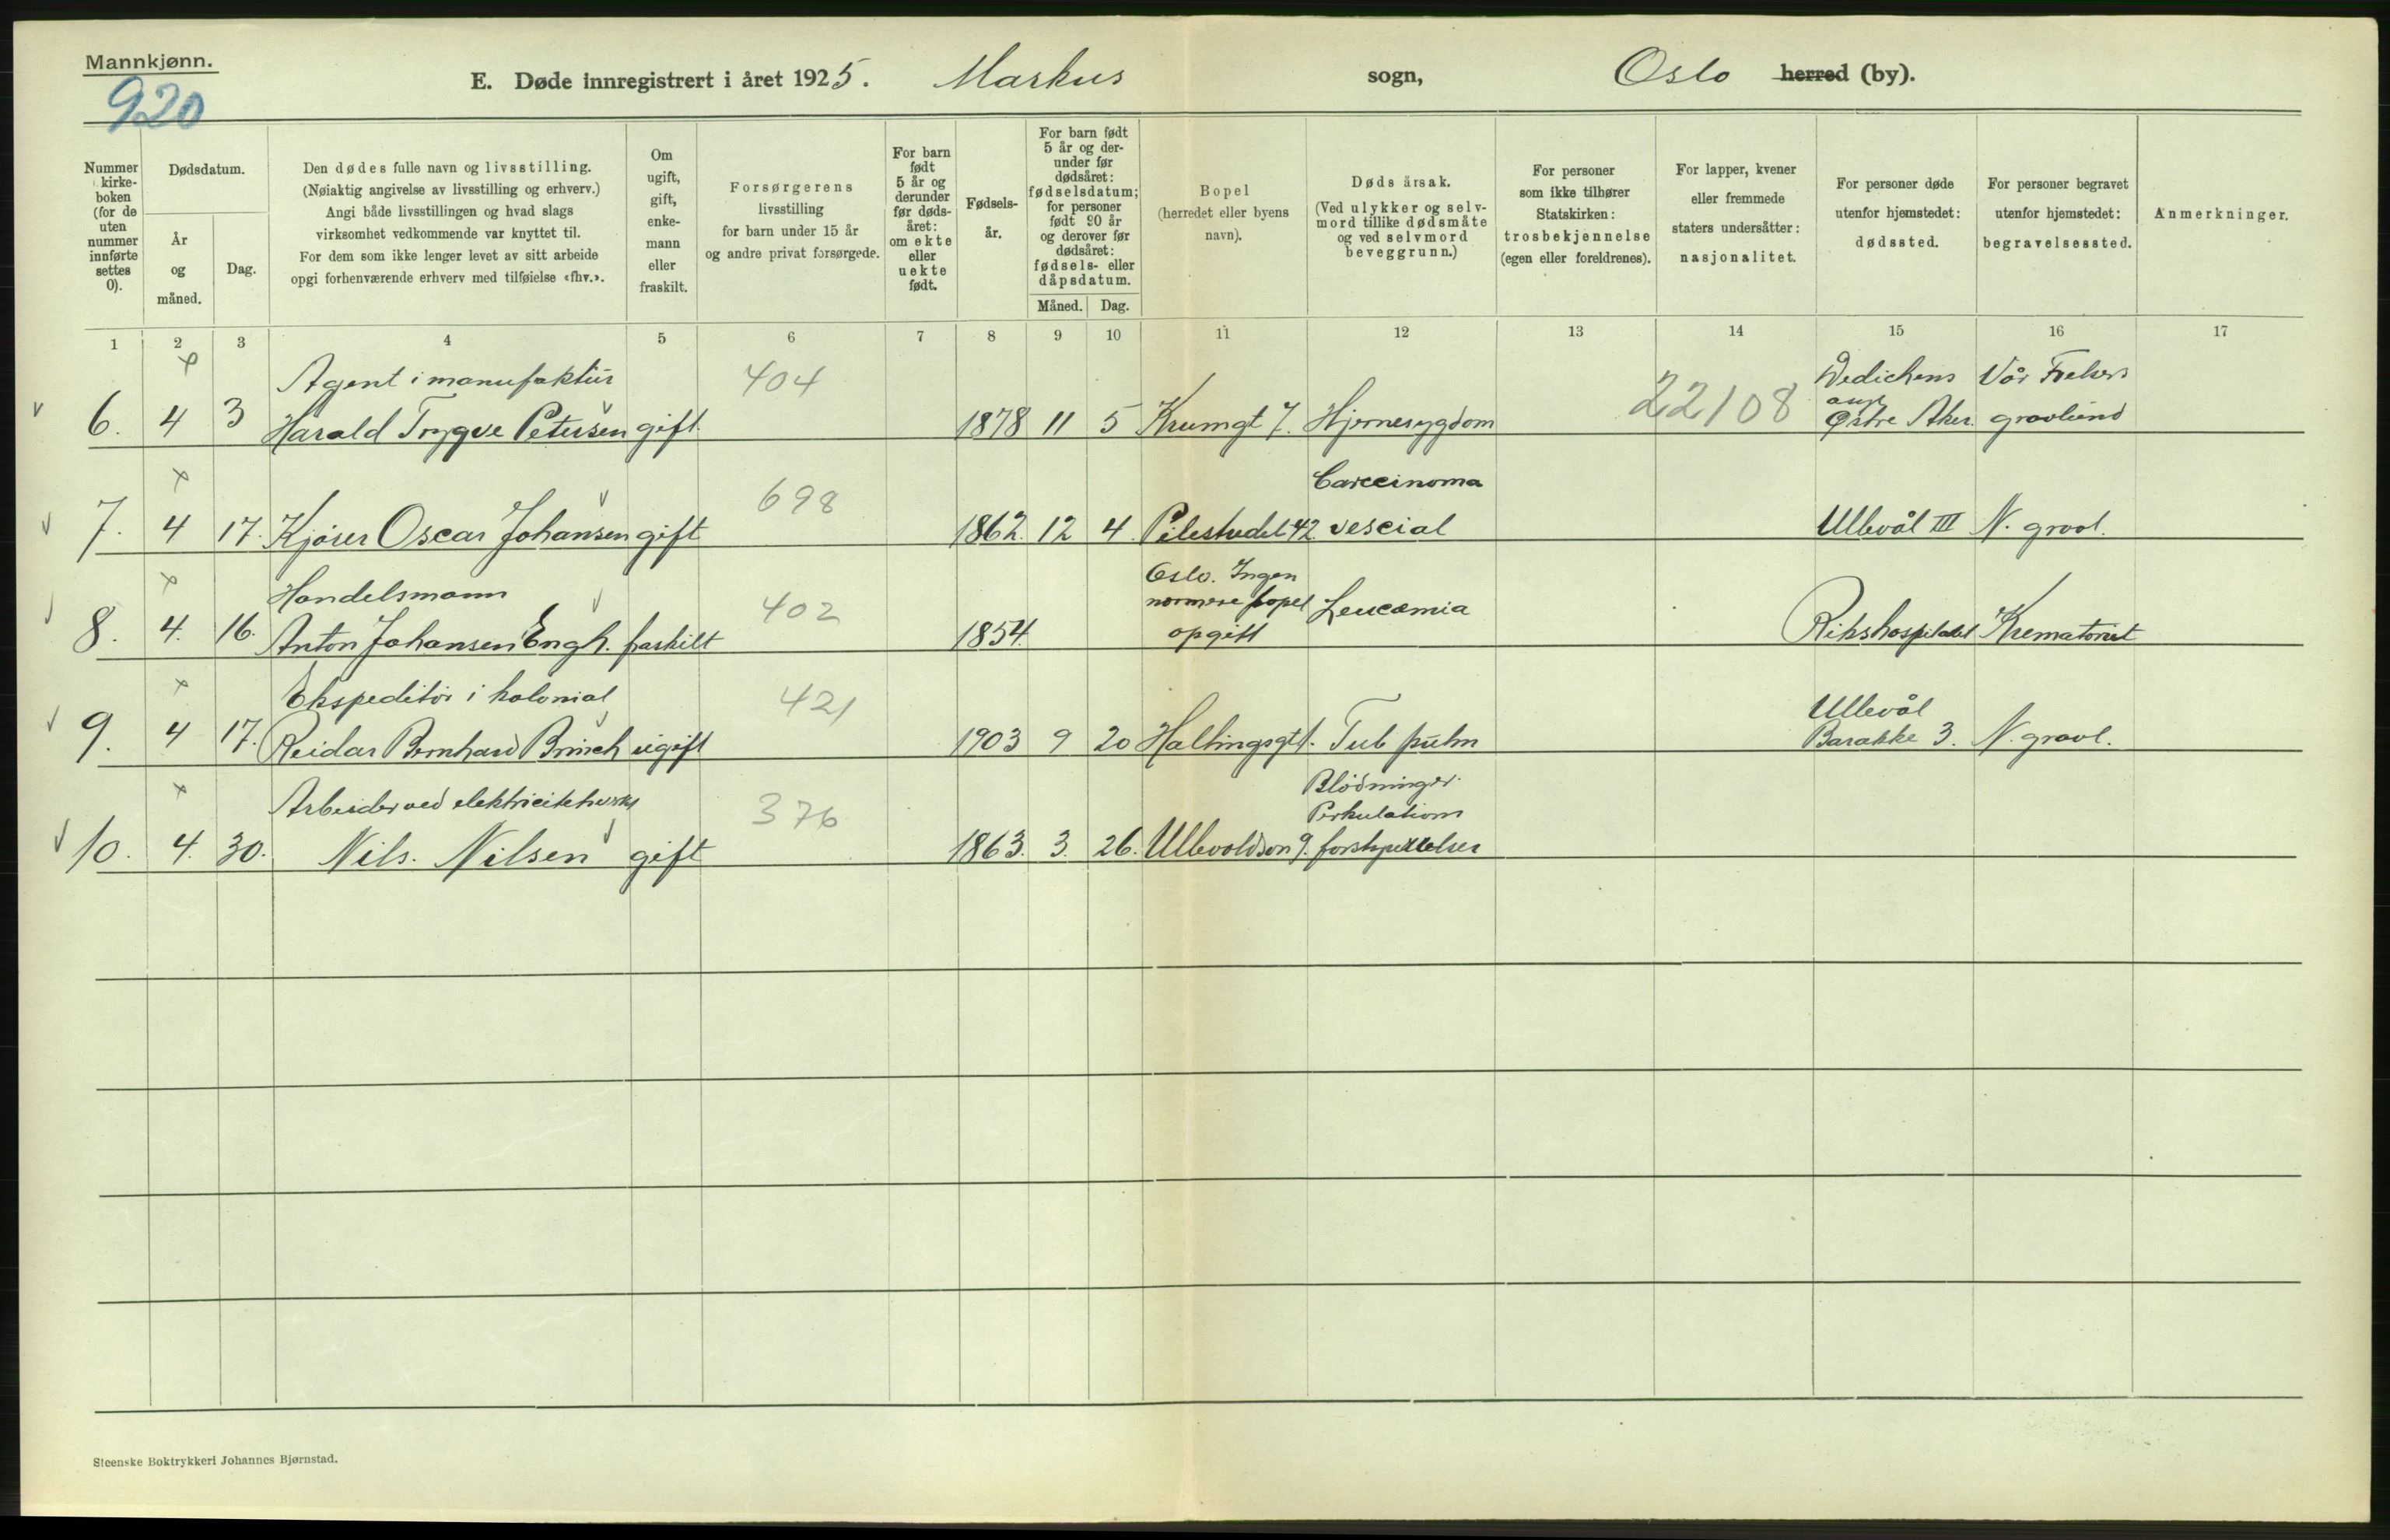 Mannkjønn.
920
E. Døde innregistrert i året 1925. Markus sogn, Oslo herred (by).
Nummer i kirke-boken (for de uten nummer innførte settes 0).
Dødsdatum.
År og måned.
Dag.
Den dødes fulle navn og livsstilling.
(Nøiaktig angivelse av livsstilling og erhverv.)
Angi både livsstillingen og hvad slags
virksomhet vedkommende var knyttet til.
For dem som ikke lenger levet av sitt arbeide
opgi forhenværende erhverv med tilføielse «fhv.».
Om ugift, gift, enke-mann eller fraskilt.
Forsørgerens
livsstilling
for barn under 15 år
og andre privat forsørgede.
For barn født 5 år og derunder før døds-året: om ekte eller uekte født.
Fødsels-år.
For barn født 5 år og der-under før dødsåret: fødselsdatum; for personer født 90 år og derover før dødsåret: fødsels- eller dåpsdatum.
Måned. Dag.
Bopel
(herredet eller byens
navn).
Døds årsak.
(Ved ulykker og selv-
mord tillike dødsmåte
og ved selvmord
beveggrunn.)
For personer
som ikke tilhører
Statskirken:
trosbekjennelse
(egen eller foreldrenes).
For lapper, kvener
eller fremmede
staters undersåtter:
nasjonalitet.
For personer døde
utenfor hjemstedet:
dødssted.
For personer begravet
utenfor hjemstedet:
begravelsessted.
Anmerkninger.
1 2 3 4 5 6 7 8 9 10 11 12 13 14 15 16 17
Agent i manufaktur 404 Dedichens Vår Frelsers
asyl
6. 4 3 Harald Trygve Petersen gift. 1878 11 5 Krumgt 7. Hjernesygdom 22108 Østre Aker. gravlund
698 Carccinoma
7. 4 17. Kjører Oscar Johansen gift 1862. 12 4. Pilestredet 42. vescial Ullevål III N. gravl.
Handelsmann 402 Oslo. Ingen
nærmere bopel Leucæmia
8. 4. 16. Anton Johansen Engh. fraskilt 1854. opgitt Rikshospitalet Krematoriet
Ekspeditør i kolonial 421 Ullevål
9. 4 17. Reidar Bernhard Brinch ugift 1903 9 20 Hallingsgt 1. Tub pulm Barakke 3. N. gravl.
Arbeider ved elektricitetsverket 376 Blødninger.
Perkulations
10. 4. 30. Nils. Nilsen gift 1863. 3. 26. Ullevoldsvn 9. forstyrrelser
Steenske Boktrykkeri Johannes Bjørnstad.